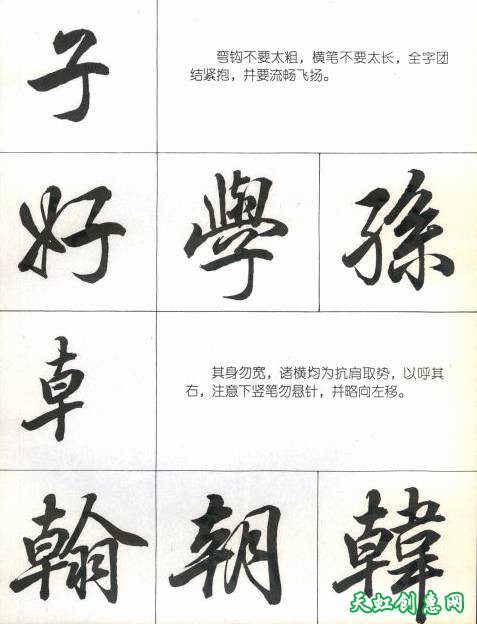 子
弯钩不要太粗，横笔不要太长，全字团
结紧抱，并要流畅飞扬。
好 學 孫
𠦝
其身勿宽，诸横均为抗肩取势，以呼其
右，注意下竖笔勿悬针，并略向左移。
翰 朝 韓
天虹创意网